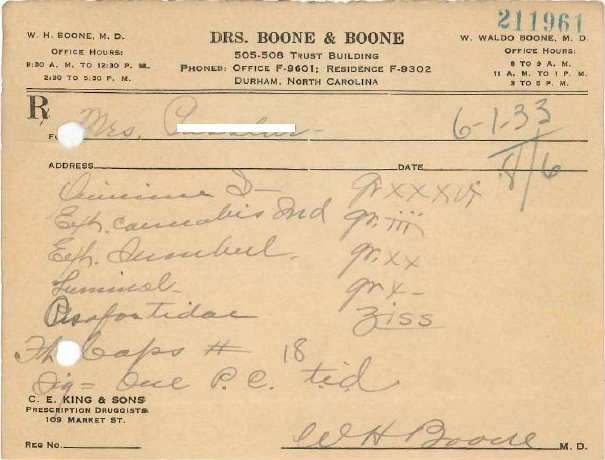 211961
W. H. BOONE, M. D.
OFFICE HOURS:
8:30 A. M. TO 12:30 P. M.
2:30 TO 5:30 P. M.
DRS. BOONE & BOONE
505-508 TRUST BUILDING
PHONES: OFFICE F-9601; RESIDENCE F-9302
DURHAM, NORTH CAROLINA
W. WALDO BOONE, M. D.
OFFICE HOURS:
8 TO 9 A. M.
11 A. M. TO 1 P. M.
3 TO 5 P. M.
℞
Mrs. 6-1-33
ADDRESS DATE 8/6
gr xxxvi
Ext. Cannabis Ind gr. iii
Ext. Sumbul gr. xx
Luminol gr x
Asafoetidae ʒiss
Caps # 18
Sig = One P.C. t.i.d.
C. E. KING & SONS
PRESCRIPTION DRUGGISTS
109 MARKET ST.
REG NO. WH Boone M. D.